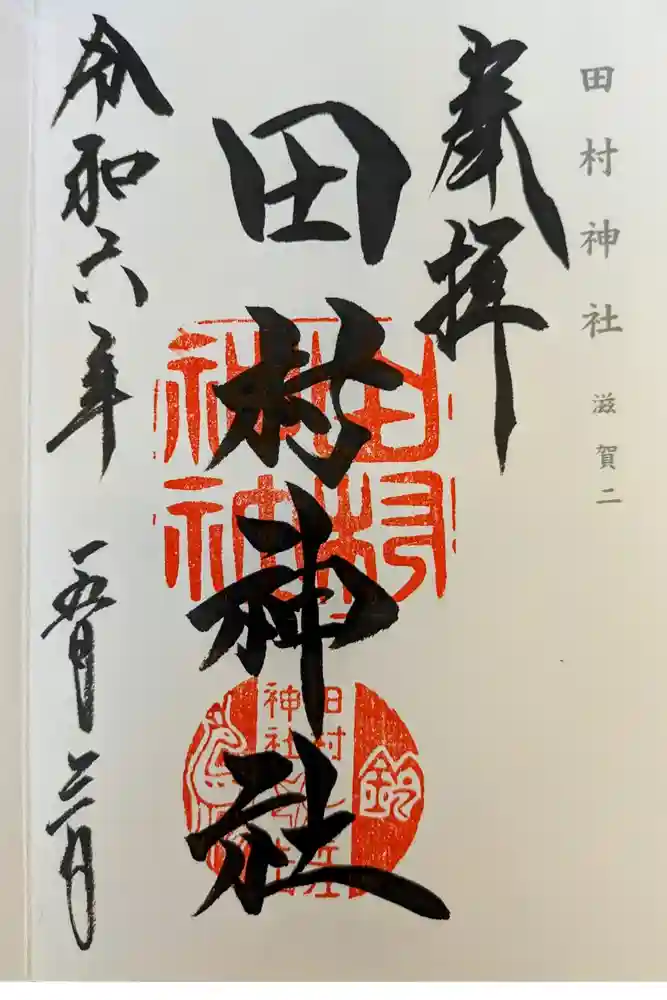 田村神社 滋賀二
奉拝
田村神社
令和六年 五月三日
田村
神社
田村
神社
鈴